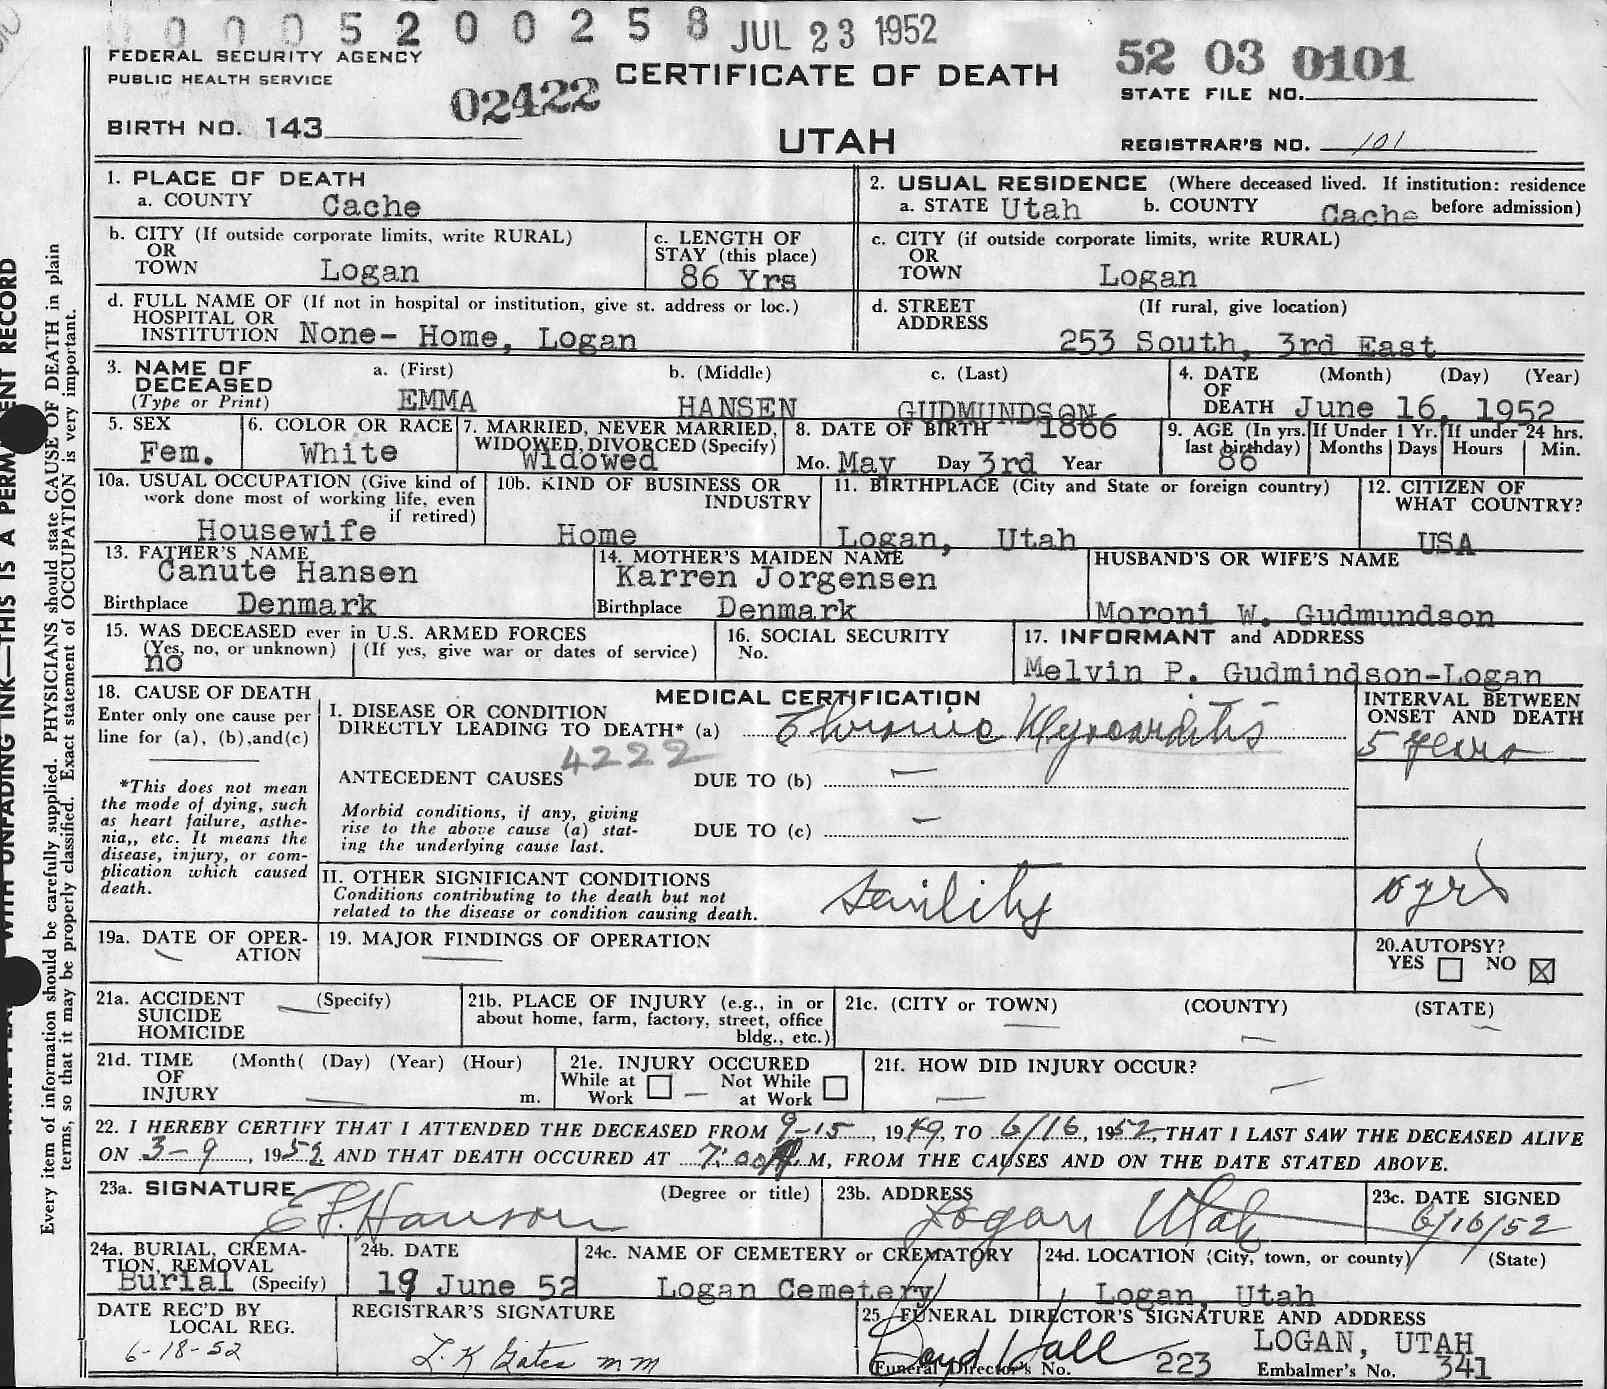 0 0 0 5 2 0 0 2 5 8 JUL 23 1952
FEDERAL SECURITY AGENCY
PUBLIC HEALTH SERVICE
02422
CERTIFICATE OF DEATH
52 03 0101
STATE FILE NO.
BIRTH NO. 143
UTAH
REGISTRAR'S NO. 101
1. PLACE OF DEATH
a. COUNTY Cache
2. USUAL RESIDENCE (Where deceased lived. If institution: residence
a. STATE Utah b. COUNTY Cache before admission)
b. CITY (If outside corporate limits, write RURAL)
OR
TOWN Logan
c. LENGTH OF
STAY (this place)
86 Yrs
c. CITY (if outside corporate limits, write RURAL)
OR
TOWN Logan
d. FULL NAME OF (If not in hospital or institution, give st. address or loc.)
HOSPITAL OR
INSTITUTION None- Home, Logan
d. STREET (If rural, give location)
ADDRESS
253 South, 3rd East
3. NAME OF a. (First) b. (Middle) c. (Last)
DECEASED
(Type or Print) EMMA HANSEN GUDMUNDSON
4. DATE (Month) (Day) (Year)
OF
DEATH June 16, 1952
5. SEX
Fem.
6. COLOR OR RACE
White
7. MARRIED, NEVER MARRIED,
WIDOWED, DIVORCED (Specify)
Widowed
8. DATE OF BIRTH 1866
Mo. May Day 3rd Year
9. AGE (In yrs.
last birthday)
86
If Under 1 Yr.
Months Days
If under 24 hrs.
Hours Min.
10a. USUAL OCCUPATION (Give kind of
work done most of working life, even
if retired)
Housewife
10b. KIND OF BUSINESS OR
INDUSTRY
Home
11. BIRTHPLACE (City and State or foreign country)
Logan, Utah
12. CITIZEN OF
WHAT COUNTRY?
USA
13. FATHER'S NAME
Canute Hansen
Birthplace Denmark
14. MOTHER'S MAIDEN NAME
Karren Jorgensen
Birthplace Denmark
HUSBAND'S OR WIFE'S NAME
Moroni W. Gudmundson
15. WAS DECEASED ever in U.S. ARMED FORCES
(Yes, no, or unknown) (If yes, give war or dates of service)
no
16. SOCIAL SECURITY
No.
17. INFORMANT and ADDRESS
Melvin P. Gudmindson-Logan
18. CAUSE OF DEATH
Enter only one cause per
line for (a), (b), and (c)
*This does not mean
the mode of dying, such
as heart failure, asthe-
nia,, etc. It means the
disease, injury, or com-
plication which caused
death.
MEDICAL CERTIFICATION
I. DISEASE OR CONDITION
DIRECTLY LEADING TO DEATH* (a) Chronic Myocarditis
4222
ANTECEDENT CAUSES DUE TO (b) —
Morbid conditions, if any, giving
rise to the above cause (a) stat-
ing the underlying cause last.
DUE TO (c) —
II. OTHER SIGNIFICANT CONDITIONS
Conditions contributing to the death but not
related to the disease or condition causing death.
Senility
INTERVAL BETWEEN
ONSET AND DEATH
5 years
10 yrs
19a. DATE OF OPER-
ATION
19. MAJOR FINDINGS OF OPERATION
20. AUTOPSY?
YES NO X
21a. ACCIDENT (Specify)
SUICIDE
HOMICIDE
21b. PLACE OF INJURY (e.g., in or
about home, farm, factory, street, office
bldg., etc.)
21c. (CITY or TOWN) (COUNTY) (STATE)
21d. TIME (Month( (Day) (Year) (Hour)
OF
INJURY m.
21e. INJURY OCCURED
While at Work Not While at Work
21f. HOW DID INJURY OCCUR?
22. I HEREBY CERTIFY THAT I ATTENDED THE DECEASED FROM 9-15, 1949, TO 6/16, 1952, THAT I LAST SAW THE DECEASED ALIVE
ON 3-9, 1952 AND THAT DEATH OCCURED AT 7:00 A.M, FROM THE CAUSES AND ON THE DATE STATED ABOVE.
23a. SIGNATURE (Degree or title)
Hanson
23b. ADDRESS
Logan Utah
23c. DATE SIGNED
6/16/52
24a. BURIAL, CREMA-
TION, REMOVAL
Burial (Specify)
24b. DATE
19 June 52
24c. NAME OF CEMETERY or CREMATORY
Logan Cemetery
24d. LOCATION (City, town, or county) (State)
Logan, Utah
DATE REC'D BY
LOCAL REG.
6-18-52
REGISTRAR'S SIGNATURE
L. K Gates mm
25. FUNERAL DIRECTOR'S SIGNATURE AND ADDRESS
Loyd Hall LOGAN, UTAH
(Funeral Director's No. 223 Embalmer's No. 341
WITH UNFADING INK—THIS IS A PERMANENT RECORD
Every item of information should be carefully supplied. PHYSICIANS should state CAUSE OF DEATH in plain
terms, so that it may be properly classified. Exact statement of OCCUPATION is very important.